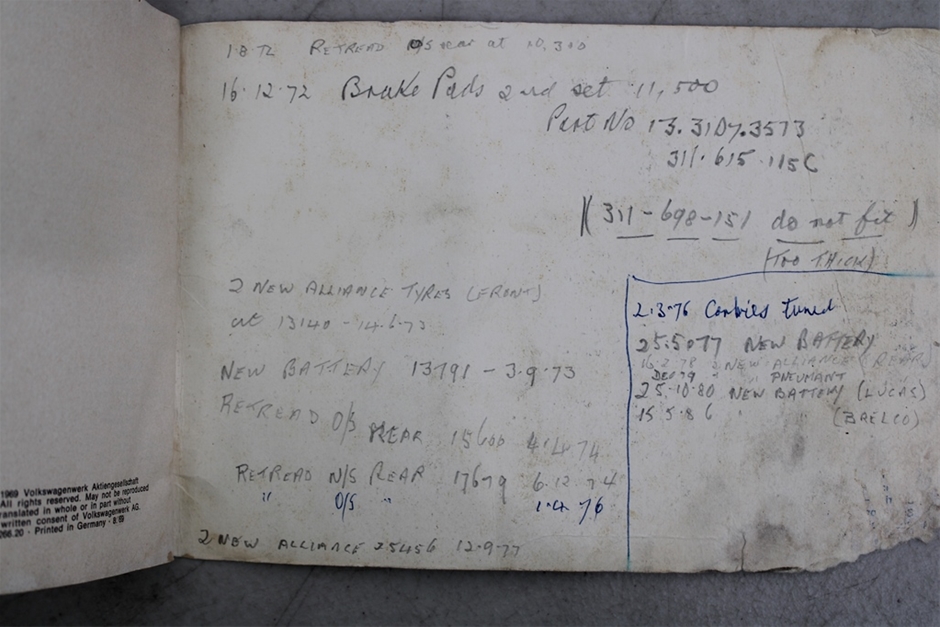 1969 Volkswagenwerk Aktiengesellschaft
All rights reserved. May not be reproduced
translated in whole or in part without
written consent of Volkswagenwerk AG.
066.20 · Printed in Germany · 8.69
1·8·72 RETREAD O/S rear at 10,300
16·12·72 Brake Pads 2nd set 11,500
Part No 13.3107.3573
311·615·115C
(311-698-151 do not fit)
(TOO THICK)
2 NEW ALLIANCE TYRES (FRONT)
at 13140 - 14.6.73
NEW BATTERY 13791 - 3.9.73
RETREAD O/S REAR 15600 4.4.74
RETREAD N/S REAR 17679 6.12.74
" O/S " 1.4.76
2 NEW ALLIANCE 25456 12.9.77
2·3·76 Carbies tuned
25.5.77 NEW BATTERY
16·2·78 2 NEW ALLIANCE (REAR)
DEC 79 " " PNEUMANT
25·10·80 NEW BATTERY (LUCAS)
15 5·86 " (BAELCO)